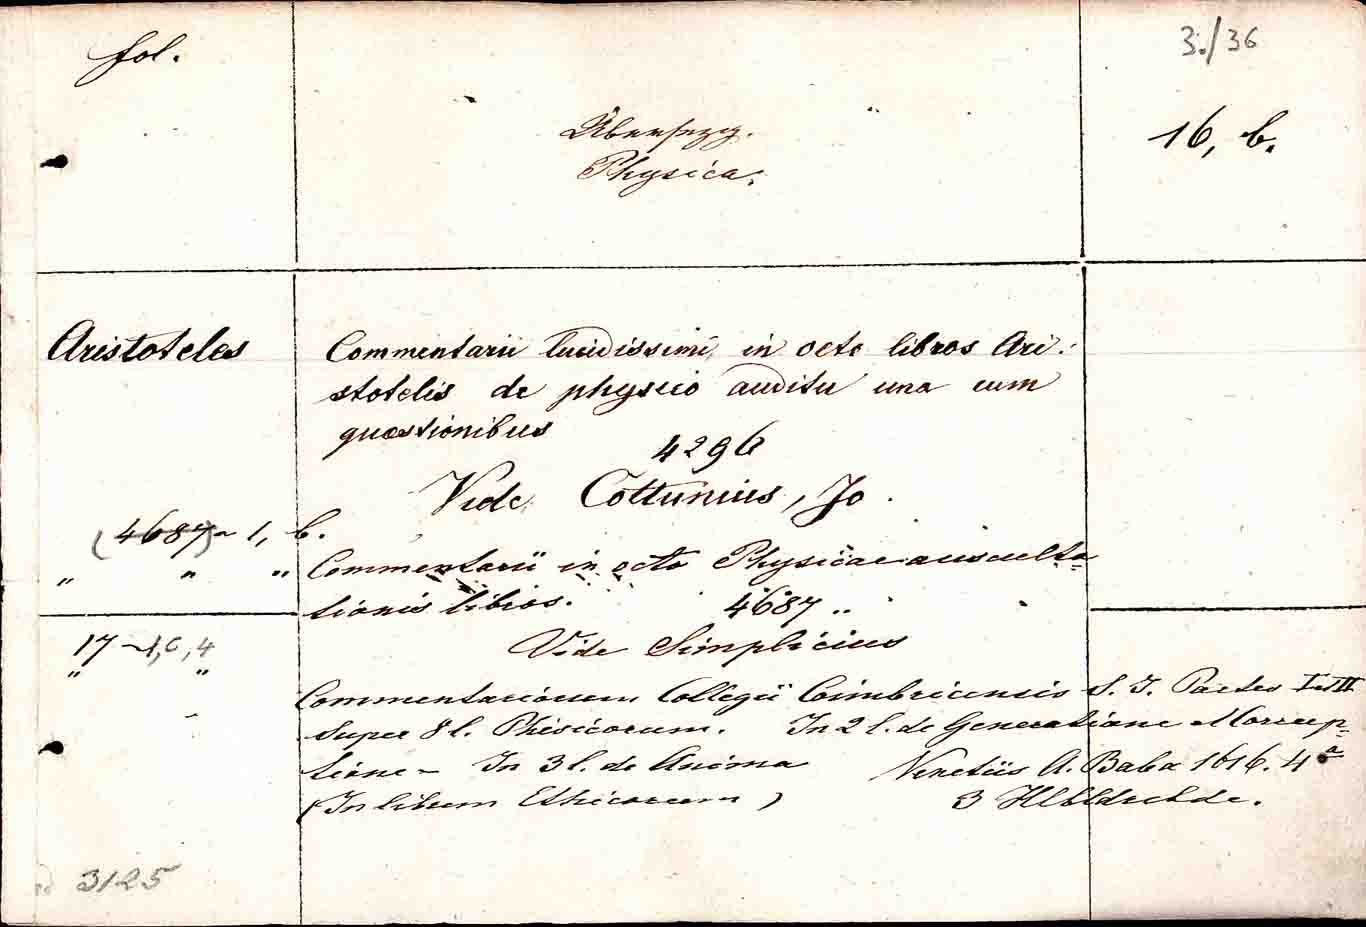 fol.
3./36
16, b.
Übersezg.
Physica.
Aristoteles
Commentarii lucidissimi in octo libros Ari-
stotelis de physico auditu una cum
quaestionibus
4296
Vide Cottunius, Jo.
(4687) - 1, b.
" " " Commentarii in octo Physicae ausculta-
tionis libros. 4687 ..
17 - 1, 6, 4
Vide Simplicius
" "
Commentariorum Collegii Coimbricensis S. J. Partes I et II
super 8 l. Phisicorum. In 2 l. de Generatione
tione - In 3 l. de Anima Venetiis A. Baba 1616. 4°
(In librum Ethicorum) 3 Hlbldrbde.
3125